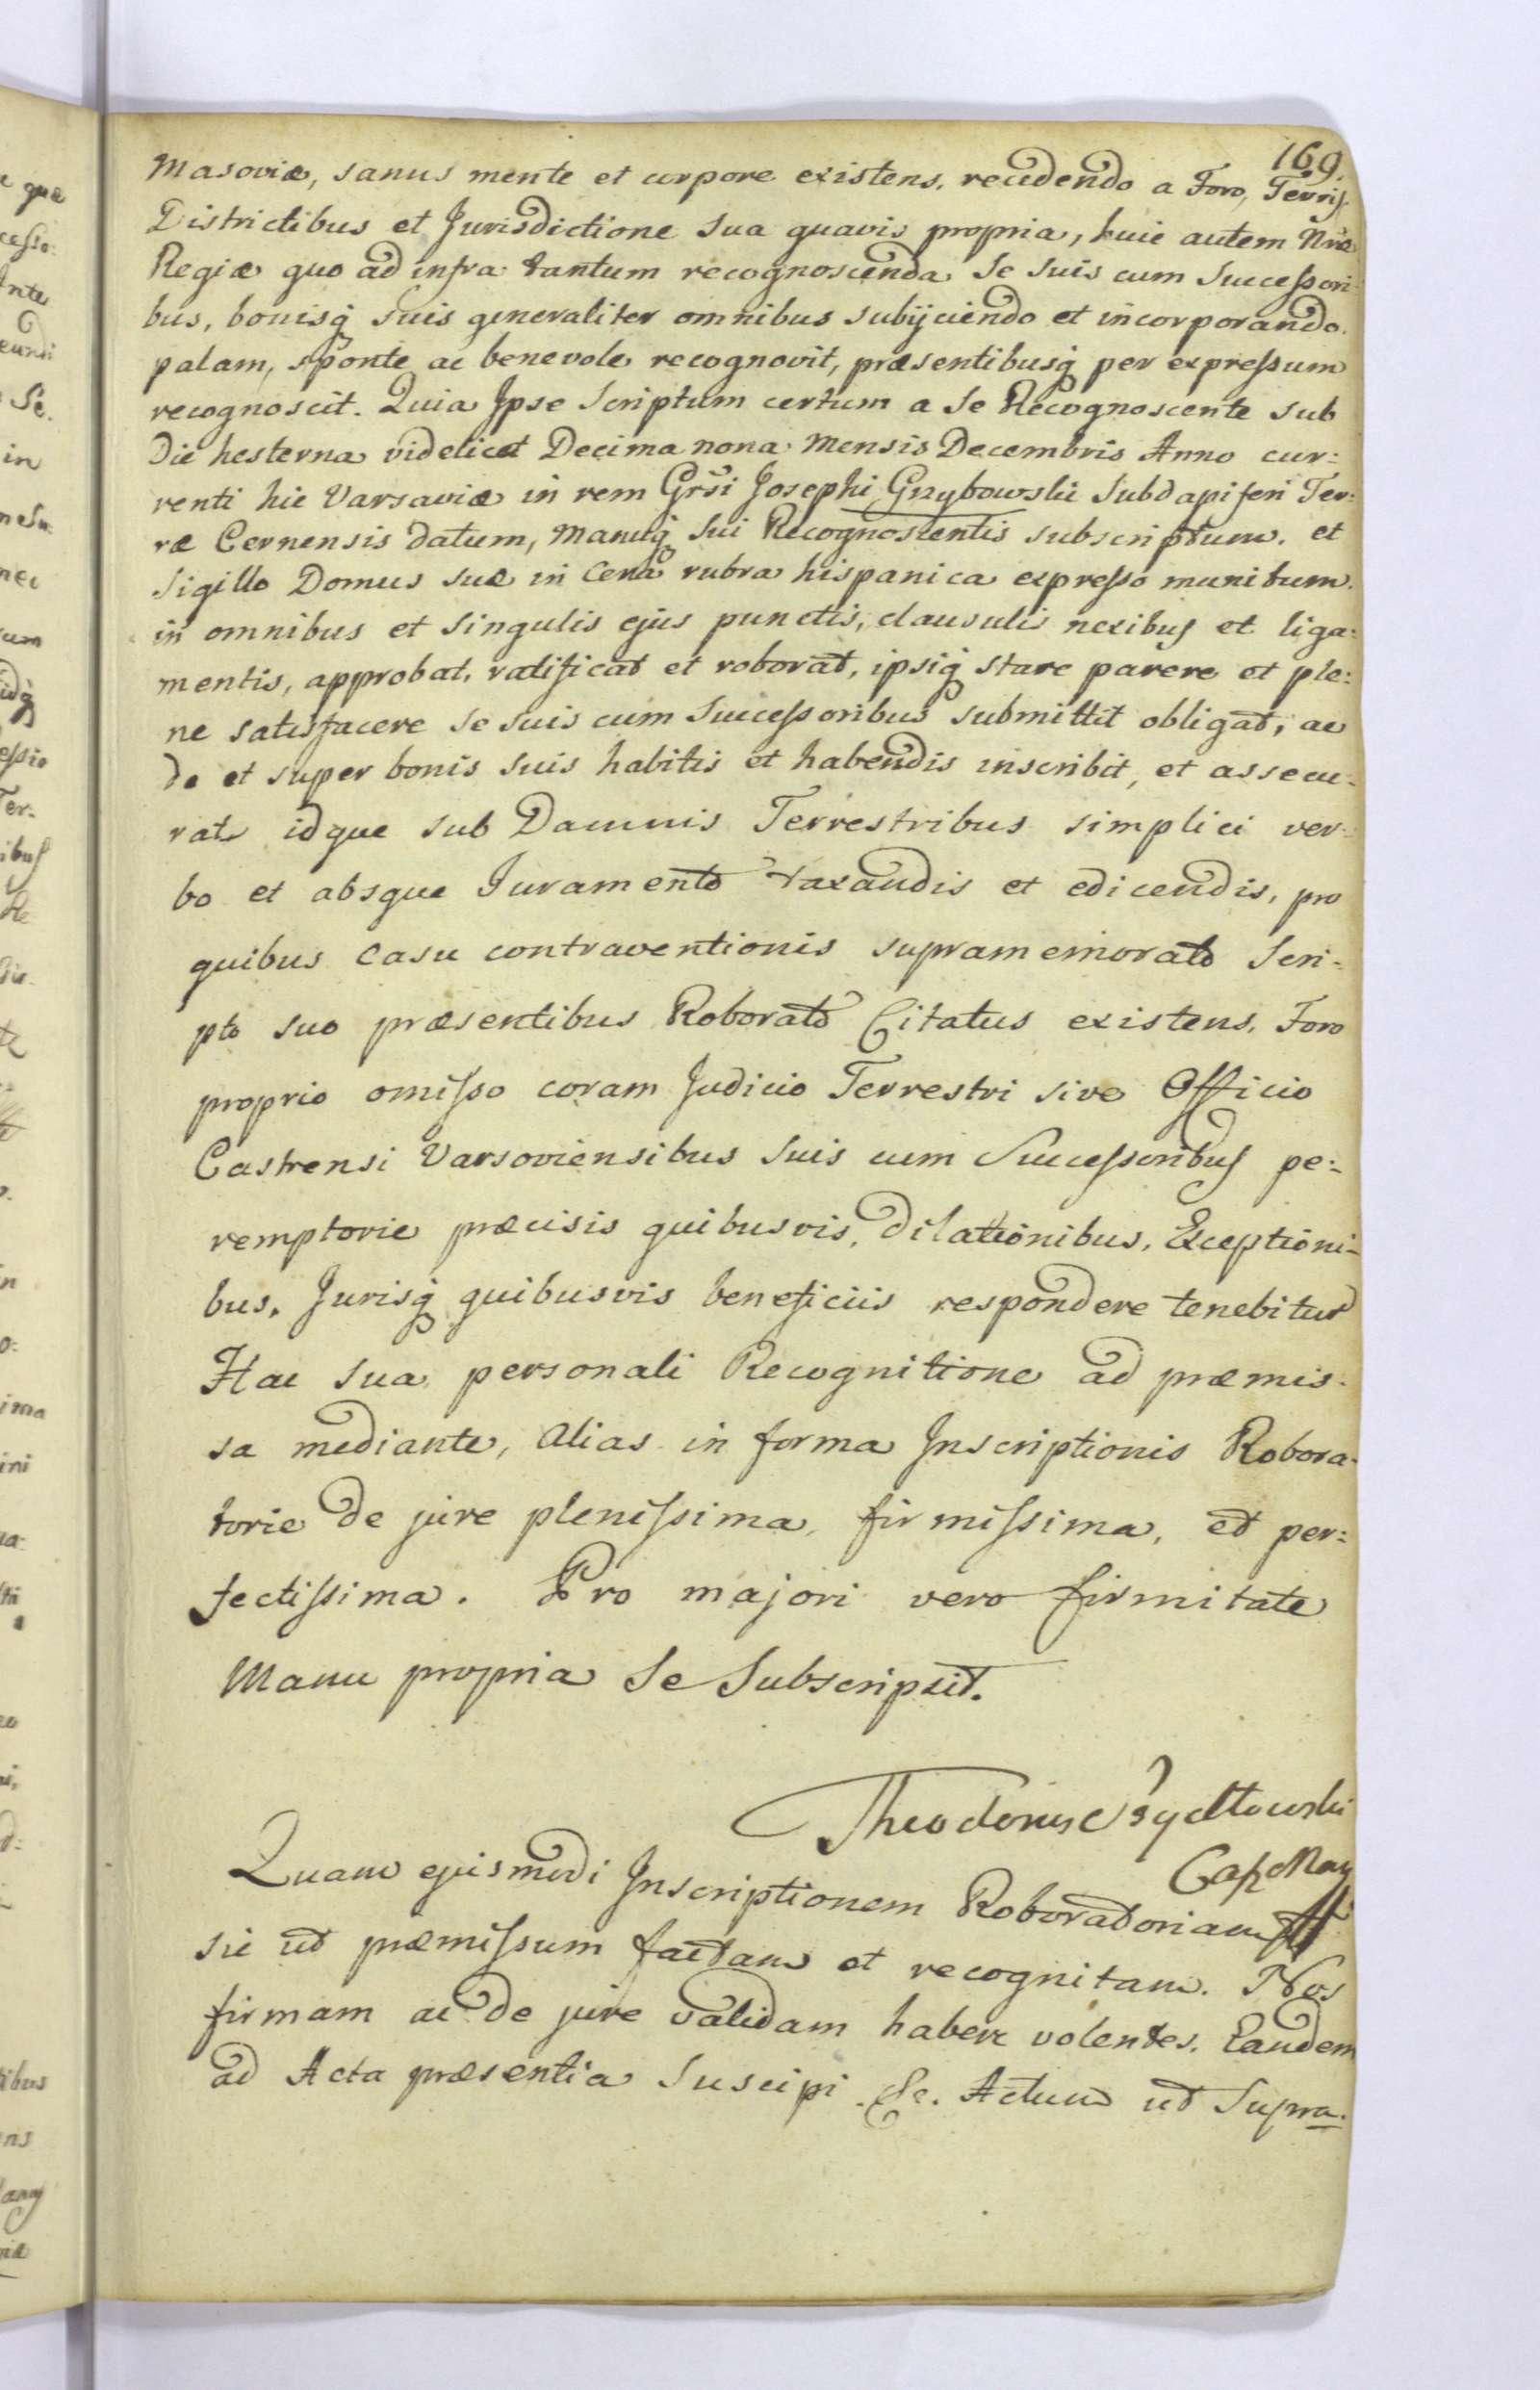 169.
Masoviæ, sanus mente et corpore existens, recedendo a Foro, Terris
Districtibus et Jurisdictione sua quavis propria, huic autem Nræ
Regiæ quo ad infra tantum recognoscenda se suis cum Successori-
bus, bonisq suis generaliter omnibus subijciendo et incorporando.
palam, sponte ac benevole recognovit, præsentibusq per expressum
recognoscit. Quia Ipse Scriptum certum a se Recognoscente sub
Die hesterna videlicet Decima nona Mensis Decembris Anno cur:
renti hic Varsaviæ in rem Grsi Josephi Grzybowski Subdapiferi Ter:
ræ Cernensis datum, Manuq sui Recognoscentis subscriptum. et
Sigillo Domus suæ in Cera rubra hispanica expresso munitum.
in omnibus et singulis ejus punctis, clausulis nexibus et liga:
mentis, approbat, ratificat et roborat, ipsiq stare parere et ple:
ne satisfacere se suis cum Successoribus submittit obligat, ac
de et super bonis suis habitis et habendis inscribit, et assecu-
rat idque sub Damnis Terrestribus simplici ver-
bo et absque Juramento taxandis et edicendis, pro
quibus casu contraventionis supramemorato Scri-
pto suo præsentibus Roborato Citatus existens, Foro
proprio omisso coram Judicio Terrestri sive Officio
Castrensi Varsoviensibus suis cum Successoribus pe:
remptorie præcisis quibusvis, Dilationibus, Exceptioni-
bus, Jurisq quibusvis beneficiis respondere tenebitur
Hac sua personali Recognitione ad præmis-
sa mediante, alias in forma Inscriptionis Robora-
torie de jure plenissima, firmissima, et per:
fectissima. Pro majori vero firmitate
Manu propria se Subscripsit.
Theodorus Szydłowski
Quam ejusmodi Inscriptionem Roboratoriam
sic ut præmissum factam et recognitam. Nos
firmam ac de jure validam habere volentes. Eandem
ad Acta præsentia Suscipi &c. Actum ut Supra.